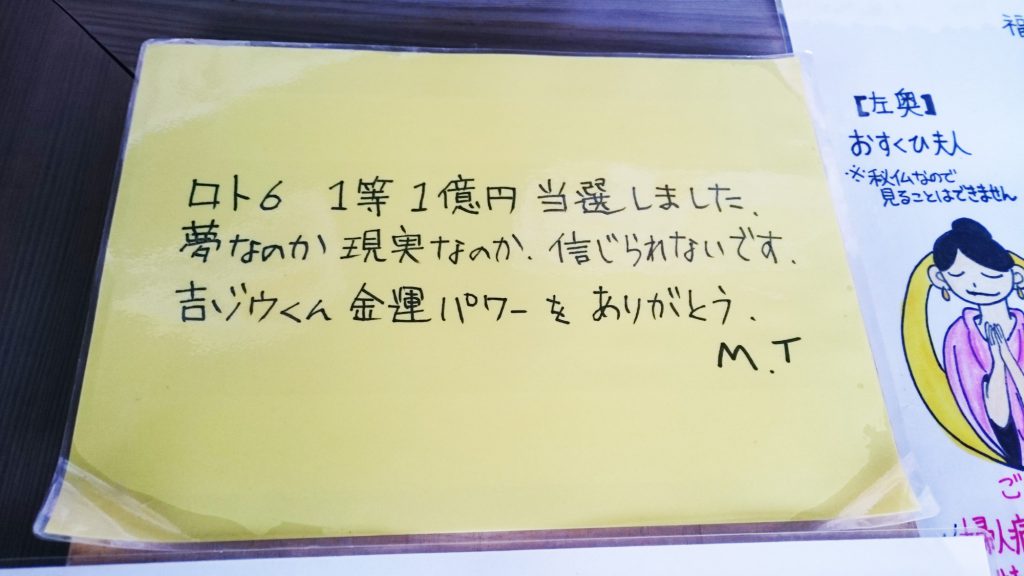 ロト6 1等1億円当選しました.
夢なのか現実なのか.信じられないです.
吉ゾウくん金運パワーをありがとう.
M.T
福
【左奥】
おすくひ夫人
※秘仏なので
見ることはできません
ご
婦人病